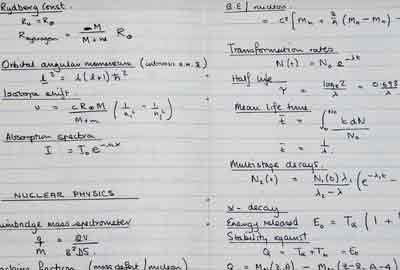 Rydberg Const.
R₀ = R∞
R_hydrogen = M / (M + m) R∞
Orbital angular momentum
l² = l(l+1)ħ²
Isotope shift.
υ = cR∞M / (M+m) (1/n₁² - 1/n₂²)
Absorption spectra
I = I₀e^-nαx
NUCLEAR PHYSICS
mass spectrometer
q/m = 2V / B²DS
fraction (mass defect/nucleon)
B.E/nucleon
= c² [Mₙ + Z/A (M_H - Mₙ) -
Transformation rates
N(t) = N₀ e^-λt
Half life
τ = logₑ2 / λ = 0.693
Mean life time
t̄ = ∫₀^N₀ t dN / N₀
t̄ = 1/λ
Multistage decays.
N₂(t) = N₁(0)λ₁ / (λ₂ - λ₁) (e^-λ₁t -
α - decay
Energy released E₀ = Tα (1 +
Stability against
Q = Tα + T_b = E₀